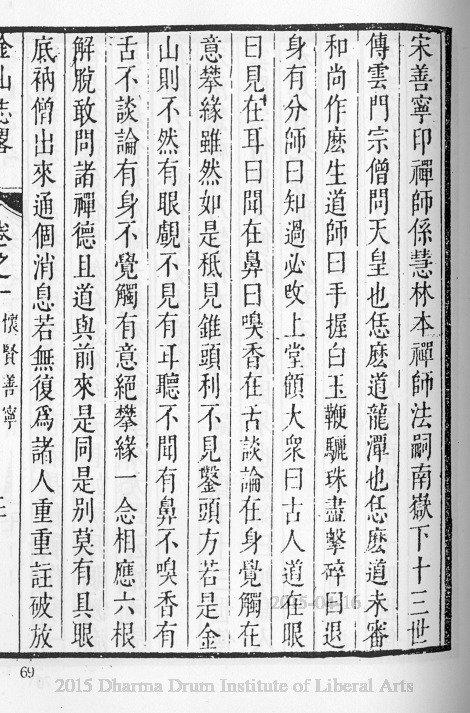 宋善寧印禪師係慧林本禪師法嗣南嶽下十三世
傳雲門宗僧問天皇也恁麽道龍潭也恁麽道未審
和尚作麽生道師曰手握白玉鞭驪珠盡擊碎曰退
身有分師曰知過必改上堂顧大衆曰古人道在眼
曰見在耳曰聞在鼻曰嗅香在舌談論在身覺觸在
意攀緣雖然如是秪見錐頭利不見鑿頭方若是金
山則不然有眼覷不見有耳聽不聞有鼻不嗅香有
舌不談論有身不覺觸有意絕攀緣一念相應六根
解脫敢問諸禪德且道與前來是同是别莫有具眼
底衲僧出來通個消息若無復爲諸人重重註破放
金山志畧
卷之一 懷賢善寧
69
2015-04-16
2015 Dharma Drum Institute of Liberal Arts